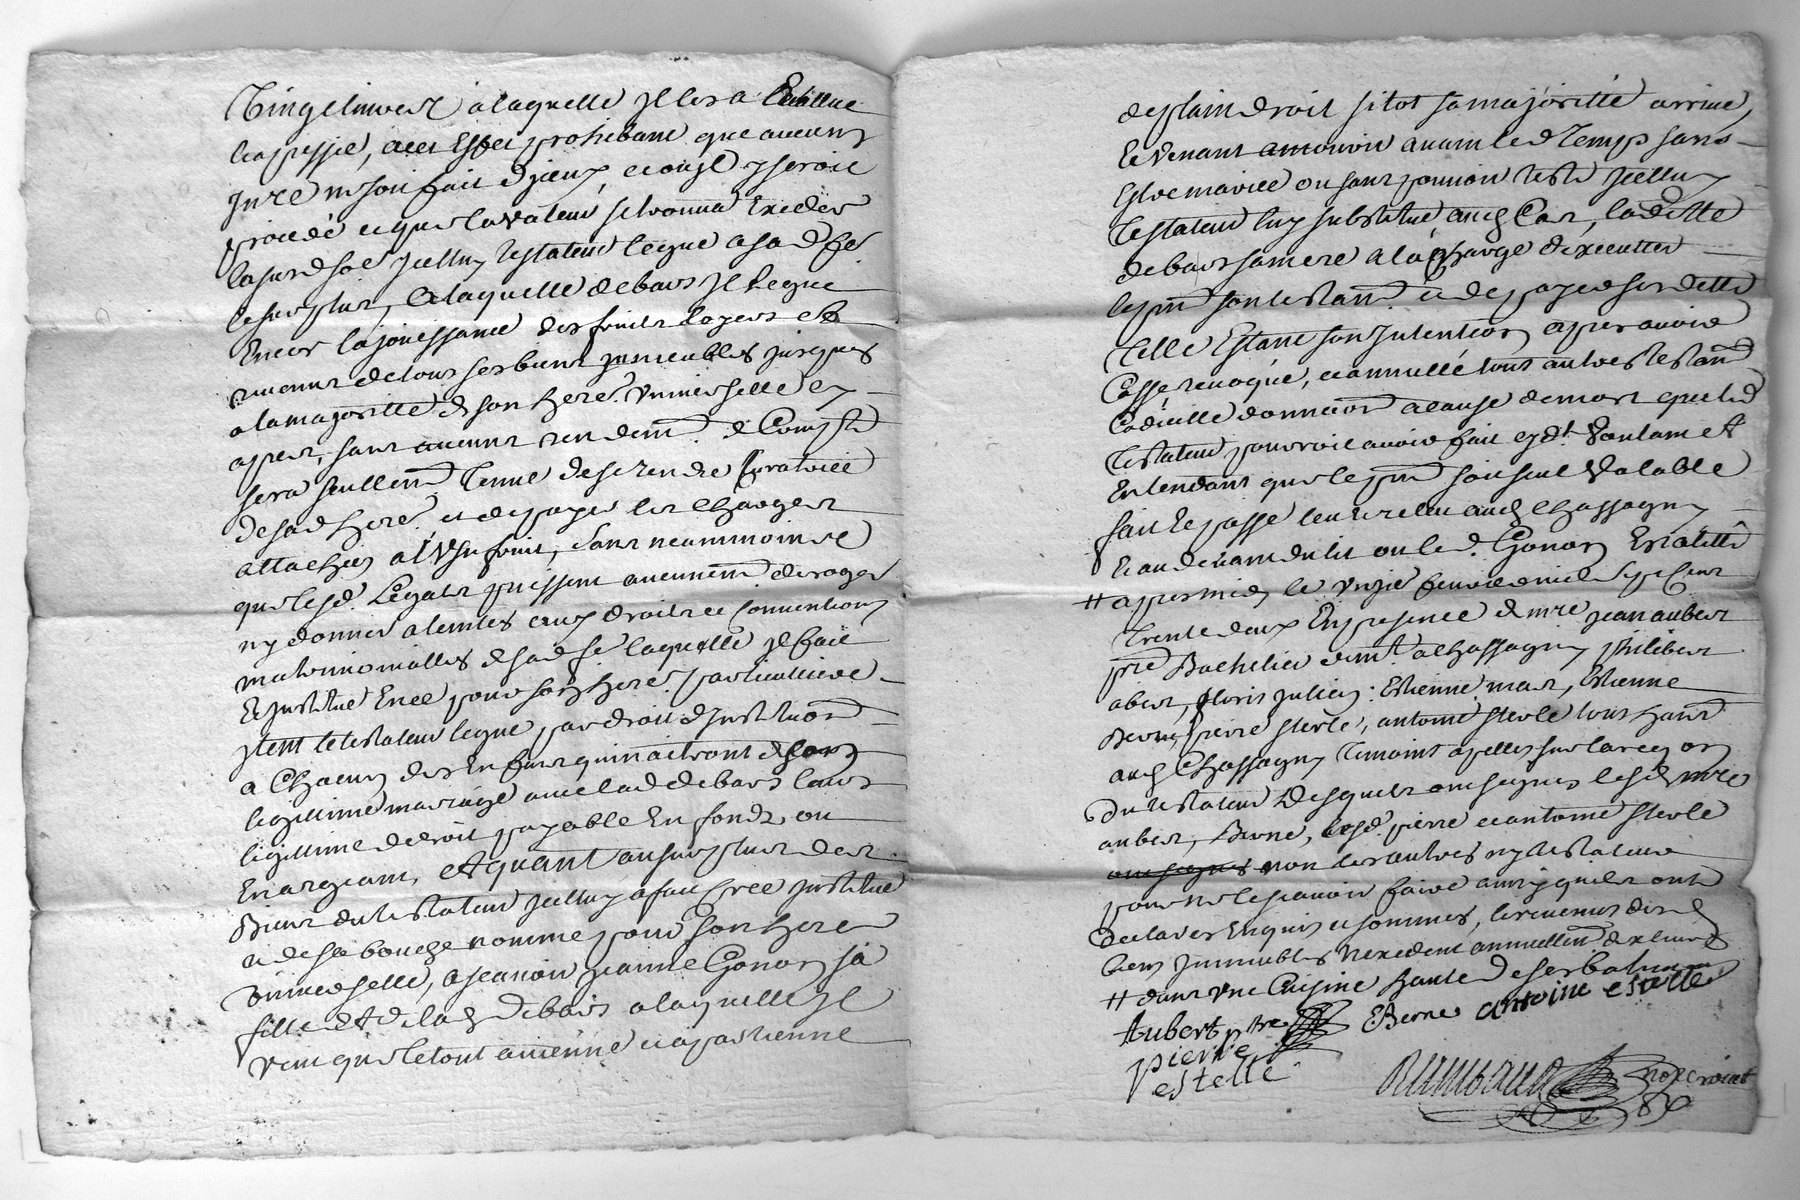 linge linver a laquelle Il les a
la presse, avec
Inre ny soit fait d'Iceux, et ou Il y seroit
procédé et que la valeur se trouva Exeder
la susd so[e] Icelluy testateur legue a sa d fe
le surplus, a laquelle debars Il legue
Encor la jouissance des fruits loyers et
revenus de tous ses biens jmmeubles jusques
a la majoritté de son here. universelle cy
apres, sans aucune rendem. de Compte
sera seullem tenue de se rendre Curatrice
de sad here. et de payer les charges
attachées a l'Usufruit, sans neammoins
que lesd. Legats puissent aucunem deroger
ny donner atteintes aux droits et conventions
matrimonialles de sad fe laquelle Il fait
Et Institue Encor pour son here. particulliere
Item le testateur legue par droit d'Institution
a Chacun des Enfans qui naitront de son
legittime mariage avec lad debars leurs
legittime de droit payable En fonds, ou
En argeant, et quant au surplus des
Biens du testateur Icelluy a fait Cree Institue
et de sa bouche nomme pour son here
universelle, a scavoir jeanne Gonon sa
fille et de lad debars a laquelle Il
veut que le tout avienne et apartienne
de plain droit sitot sa majoritté arrive,
Et venant a mourir avant led Temps sans
Estre mariée ou sans pouvoir tester Icelluy
testateur luy substitue aud Cas, laditte
debars sa mere a la Charge d'executter
le pnt son testam et de payer ses dette
telle Estant son Intention apres avoir
Cassé revoqué, et annullé tous autres testam
Codicille donnation a cause de mort que led
testateur pourroit avoir fait cy dt. voulant et
Entendant que le pnt soit seul Valable
fait Et passé aud Chassagny
Et au devant du lit ou led. Gonon Est alitté
# apres midy le unzie fevrier mil Sept Cent
trente deux En presence de mre jean aubert
pre Bachelier demt. a Chassagny philibert
abert, floris julien: Estienne mar, Etienne
Berne, pierre sterle, antoine sterle tous habt
aud Chassagny temoins apellés sur la requon
du testateur desquels ont signés lesd mre
aubert, Berne, lesd. pierre et antoine sterle
non les autres ny testateur
pour ne le scavoir faire ainsy quils ont
declares Enquis et sommes, les revenus desd
biens jmmeubles n'exedent annuellem dix livres
# dans une Cuisine haute de ses batimans
Aubert ptre EBerne antoine estelle
pierre
estelle